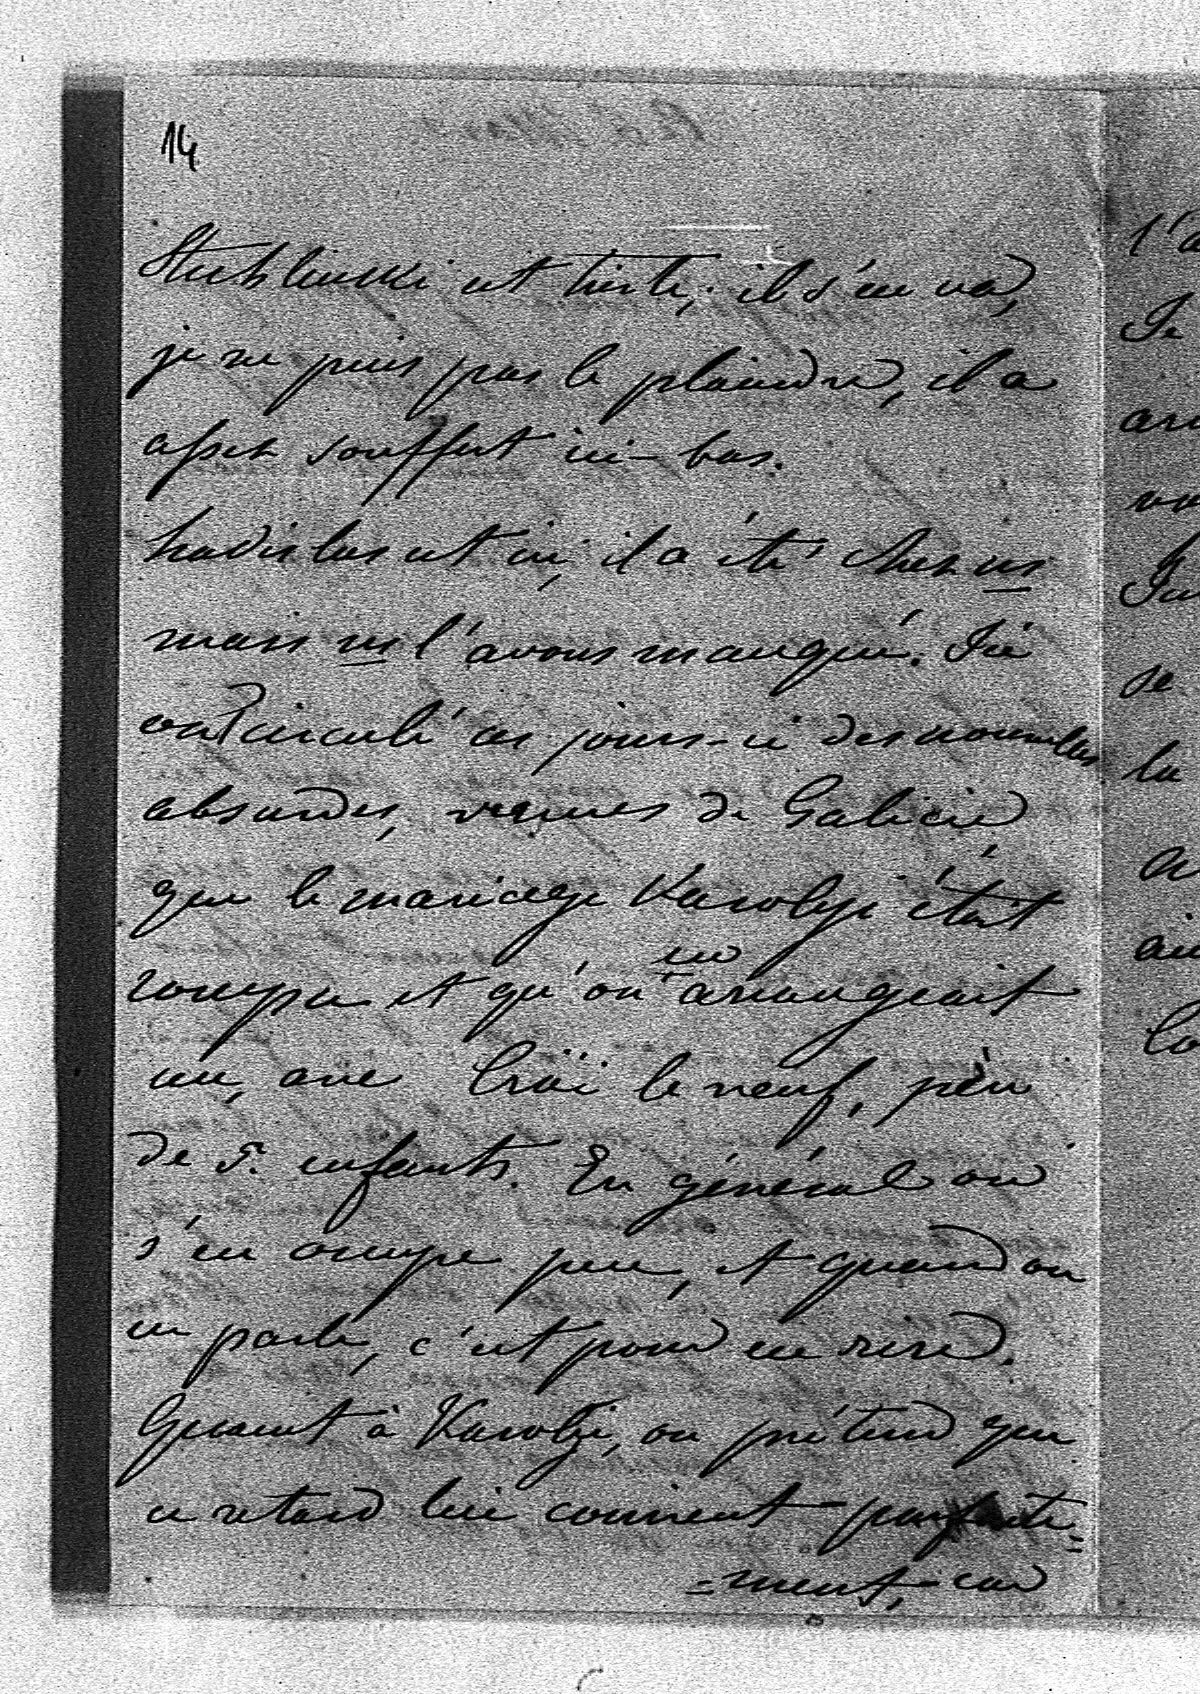 14
est triste; il s'en va,
je ne puis pas le plaindre, il a
assez souffert ici-bas.
Ladislas est ici, il a été chez ns
mais ns l'avons manqué. Ici
ont circulé ces jours-ci des nouvelles
absurdes, venues de Galicie
que le mariage Karolyi était
rompu et qu'on en arrangeait
un, avec Croï le veuf, père
de 5. enfants. En général on
s'en occupe peu, et quand on
en parle, c'est pour en rire.
Quant à Karolyi, on prétend que
ce retard lui convient parfaite=
=ment, car
l'a
Je
la